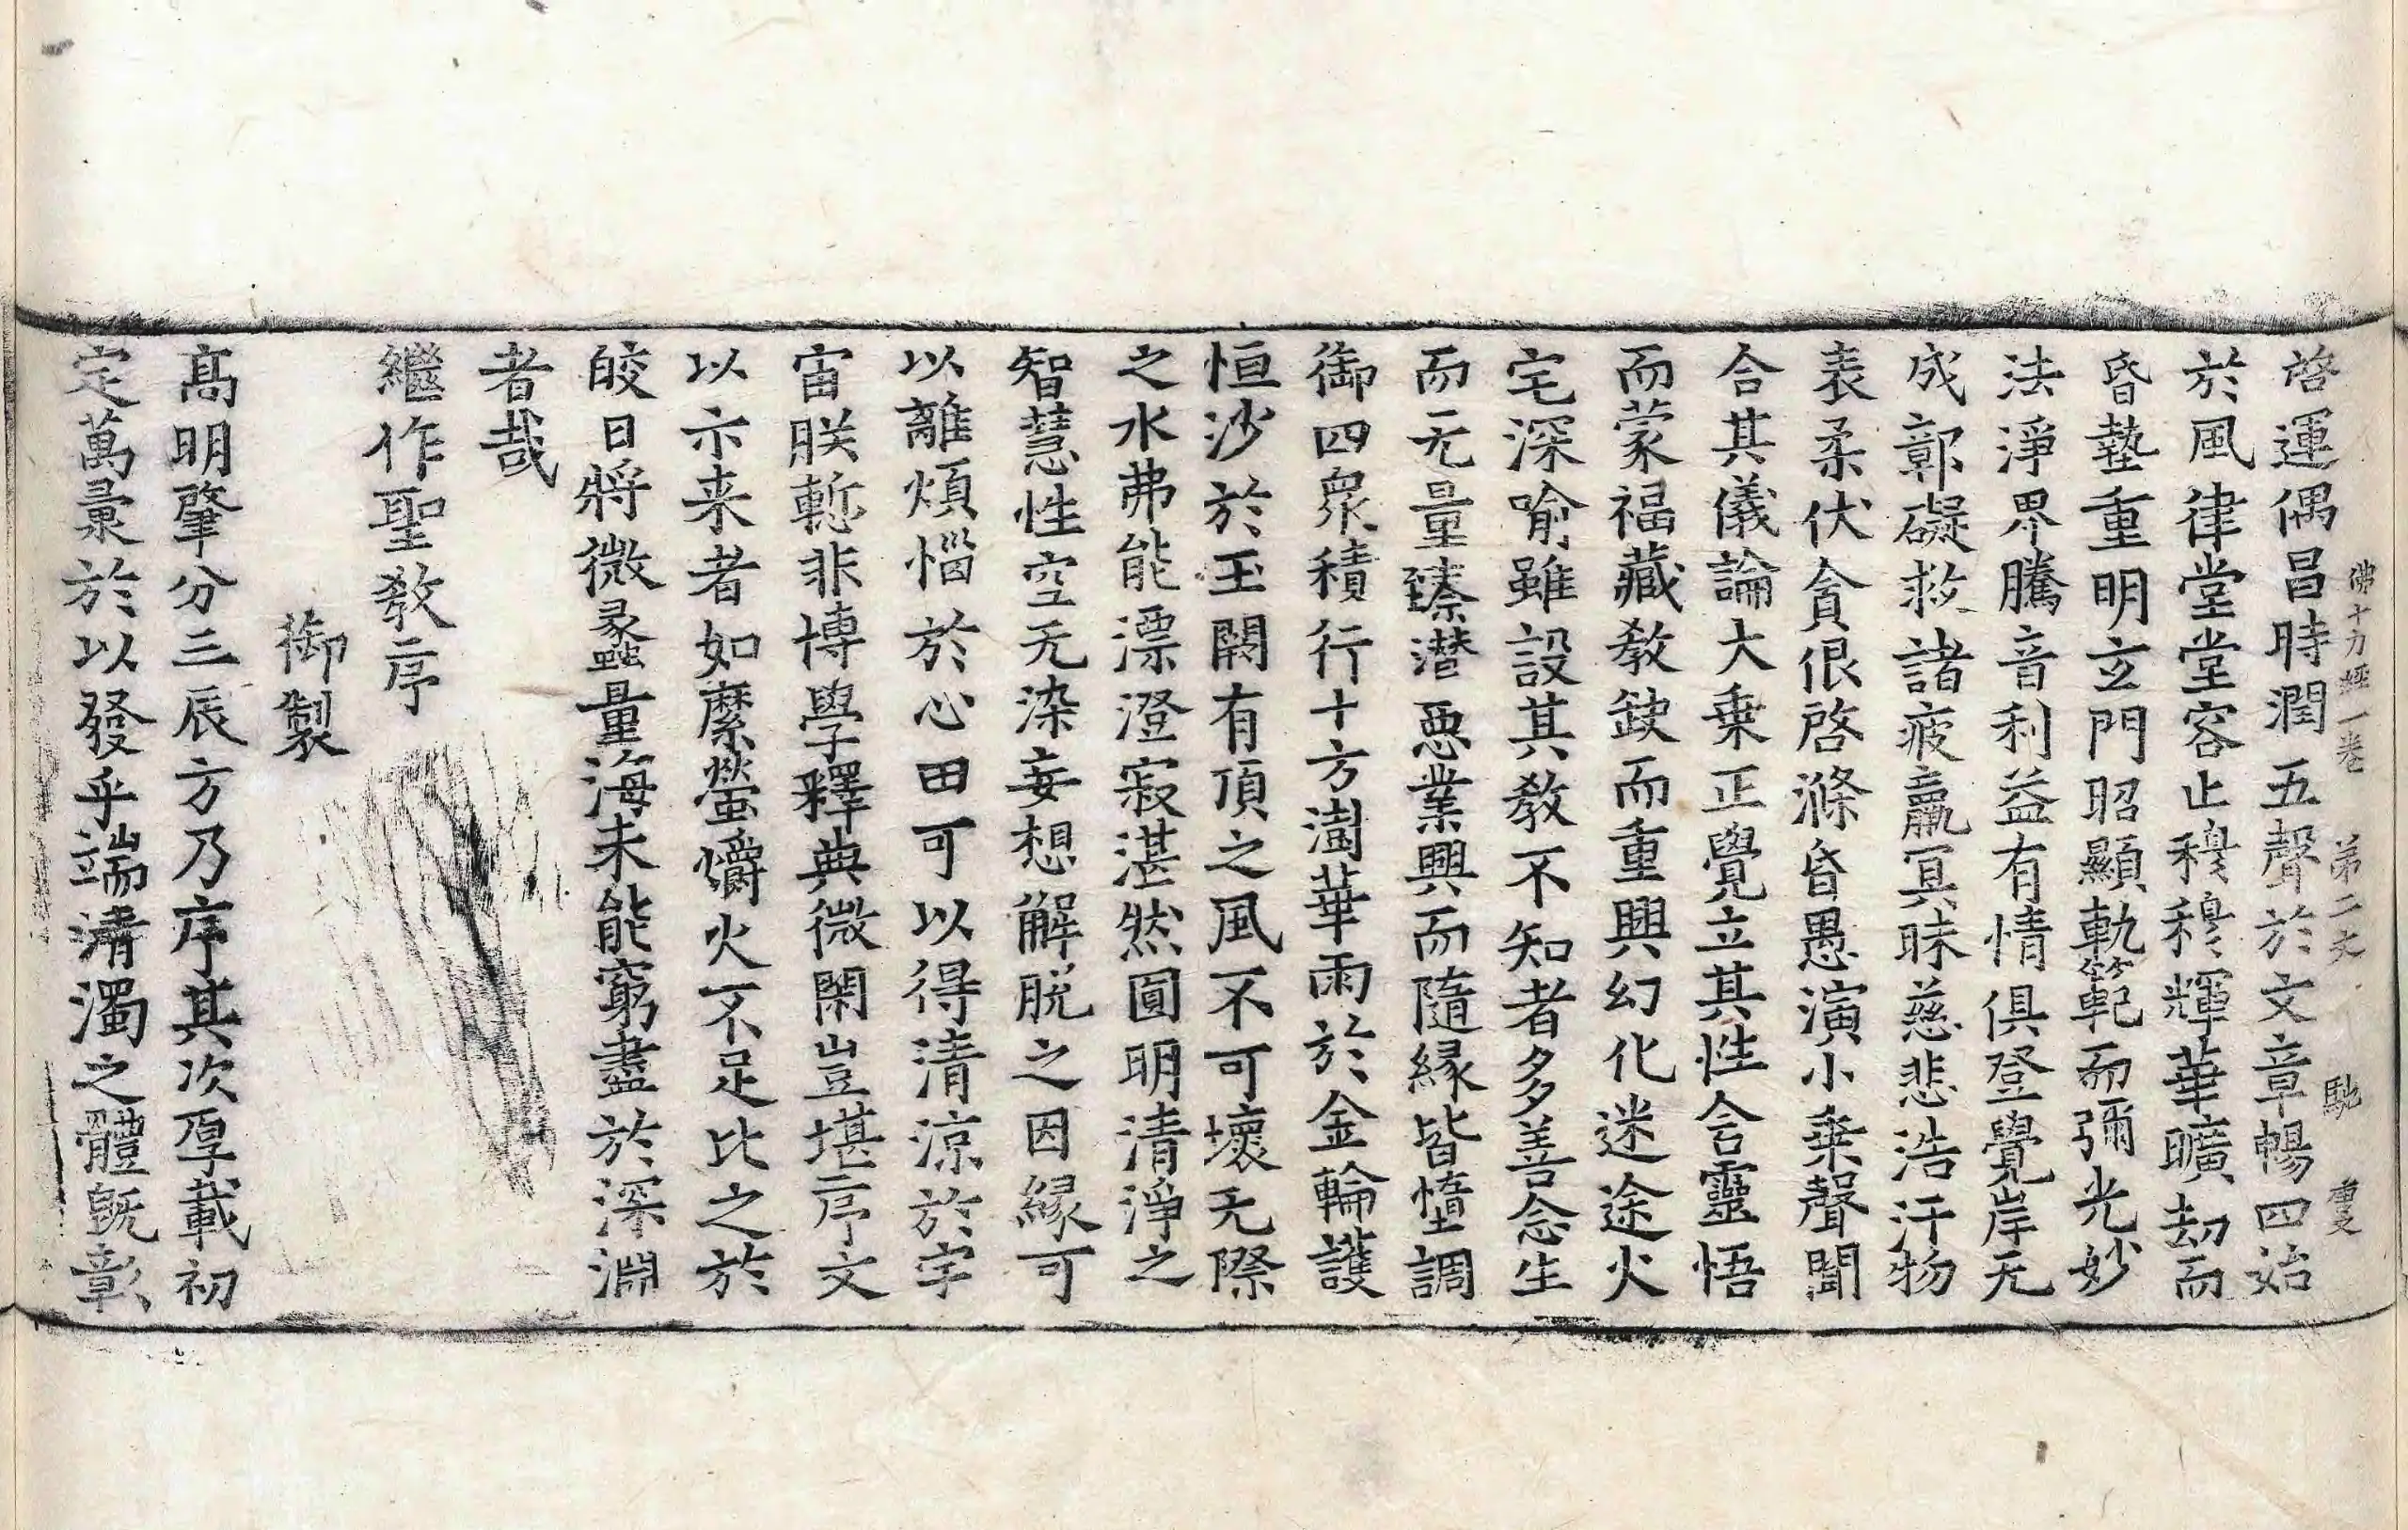 佛十力經一卷　第二丈　馳
啓運偶昌時潤五聲於文章暢四始
於風律堂堂容止穆穆輝華曠劫而
昏墊重明玄門昭顯軌範而彌光妙
法淨界騰音利益有情俱登覺岸无
成鄣礙救諸疲羸冥昧慈悲浩汗物
表柔伏貪佷啓滌昏愚演小乗聲聞
合其儀論大乗正覺立其性含靈悟
而蒙福藏教缺而重興幻化迷途火
宅深喻雖設其教不知者多善念生
而无量臻潜惡業興而隨縁皆墮調
御四衆積行十方澍華雨於金輪護
恒沙於玉闕有頂之風不可壞无際
之水弗能漂澄寂湛然圓明清淨之
智慧性空无染妄想解脱之因縁可
以離煩惱於心田可以得清涼於宇
宙朕慙非博學釋典微閑豈堪序文
以示来者如縻螢爝火不足比之於
皎日將微蠡量海未能窮盡於深淵
者哉
繼作聖教序
御製
髙明肇分三辰方乃序其次厚載初
定萬彙於以發乎端清濁之體旣彰